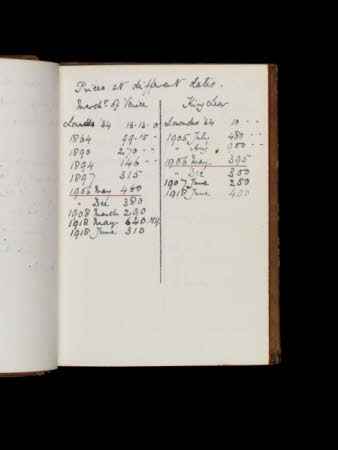 Prices at different dates.
Merch.t of Venice
Lowndes '34 13-13-0
1864 99-15 -
1890 270 - -
1894 146 - -
1897 315
1906 May 460
" Dec 380
1908 March 290
1918 May 640
1918 June 310
King Lear
Lowndes '34 10 - -
1905 July 480 - -
" Aug 900 - -
1906 May 395
" Dec 350
1907 June 250
1918 June 400